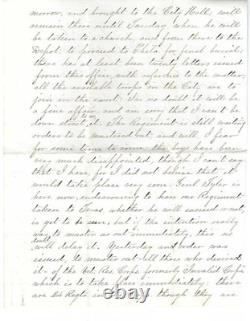 morrow, and brought to the City Hall, will
remain there until Tuesday when he will
be taken to a church, and from there to the
Depot, to proceed to Phila for final burial;
there has at least been twenty letters issued
from this office, with reference to the matter
all the available troops in the City are to
join in the escort. I have no doubt it will be
a fine affair and am sorry that I can't be
down to see it. The Regiment is still waiting
orders to be mustered out and will I fear
for some time to come, the boys have been
very much disappointed, though I can't say
that I have, for I did not believe that it
would take place very soon. Genl Tyler is
here now, endeavoring to have our Regiment
taken to Texas, whether he will succeed or not,
is yet to be seen, but if the intention really
was to muster us out immediately, this no
doubt will delay it. Yesterday an order was
issued, to muster out all those who desired
it of the Vet. Res. Corps formerly Invalid Corps
which is to take place immediately: there
are Regts in though they are
www.